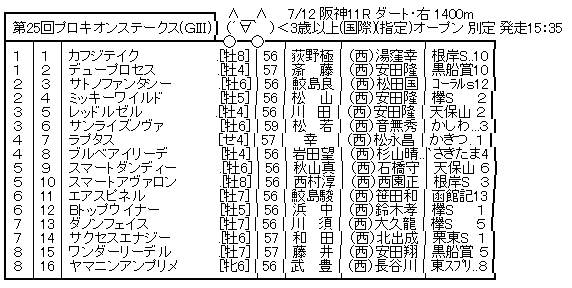 第25回プロキオンステークス(GⅢ) (´∀｀)< 7/12 阪神11R ダート・右 1400m
3歳以上(国際)(指定)オープン 別定 発走15:35
1 1 カフジテイク [牡8] 56 荻野極 (西)湯窪幸 根岸S..10
1 2 デュープロセス .[牡4] 57 斎 藤 (西)安田隆 黒船賞10
2 3 サトノファンタシー .[牡6] 56 鮫島良 (西)松田国 コーラルs12
2 4 ミッキーワイルド [牡5] 56 松 山 (西)安田隆 欅S 2
3 5 レッドルゼル .[牡4] 56 川 田 (西)安田隆 天保山 2
3 6 サンライズノヴァ .[牡6] 59 松 若 (西)音無秀 かしわ..3
4 7 ラプタス [せ4] 57 幸 (西)松永昌 かきつ 1
4 8 ブルベアイリーデ ..[牡4] 56 岩田望 (西)杉山晴.. さきたま4
5 9 スマートダンディー ..[牡6] 56 秋山真 (西)石橋守 天保山 6
5 10 スマートアヴァロン [牡8] 56 西村淳 (西)西園正 根岸S 3
6 11 エアスピネル [牡7] 56 鮫島駿 (西)笹田和 函館記13
6 12 Bトップウイナー [牡5] 56 浜 中 (西)鈴木孝 欅S 1
7 13 ダノンフェイス [牡7] 56 川 須 (西)大久龍 欅S 5
7 14 サクセスエナジー [牡6] 57 和 田 (西)北出成 栗東S 1
8 15 ワンダーリーデル .[牡7] 57 藤 井 (西)安田翔 黒船賞 5
8 16 ヤマニンアンプリメ [牝6] 56 武 豊 (西)長谷川 東スプリ..8